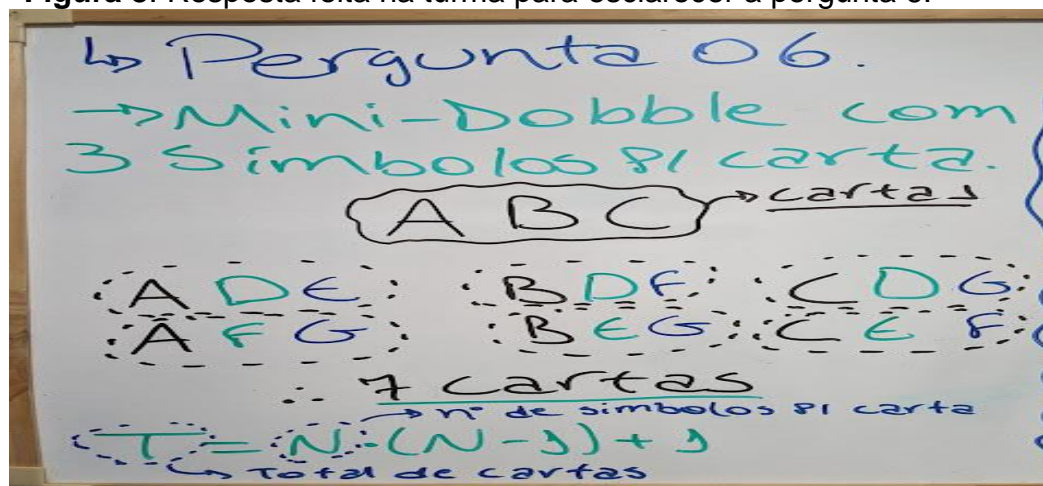 Figura 6: Resposta feita na turma para esclarecer a pergunta 6.
↳ Pergunta 06.
→ Mini-Dobble com
3 símbolos p/ carta.
A B C → cartas
A D E B D F C D G
A F G B E G C E F
∴ 7 cartas
→ nº de símbolos p/ carta
T = N·(N-1)+1
↳ Total de cartas